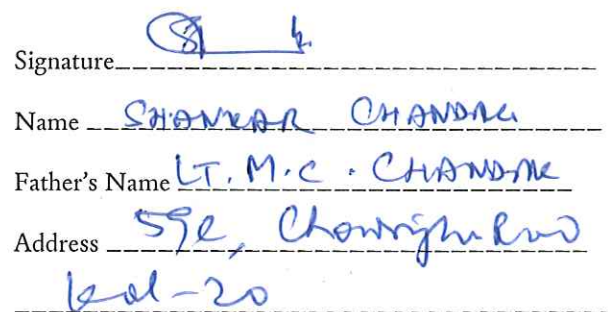 Signature
Name SHANKAR CHANDAK
Father's Name LT. M.C. CHANDAK
Address 59e, Chowringhee Road
Kol-20